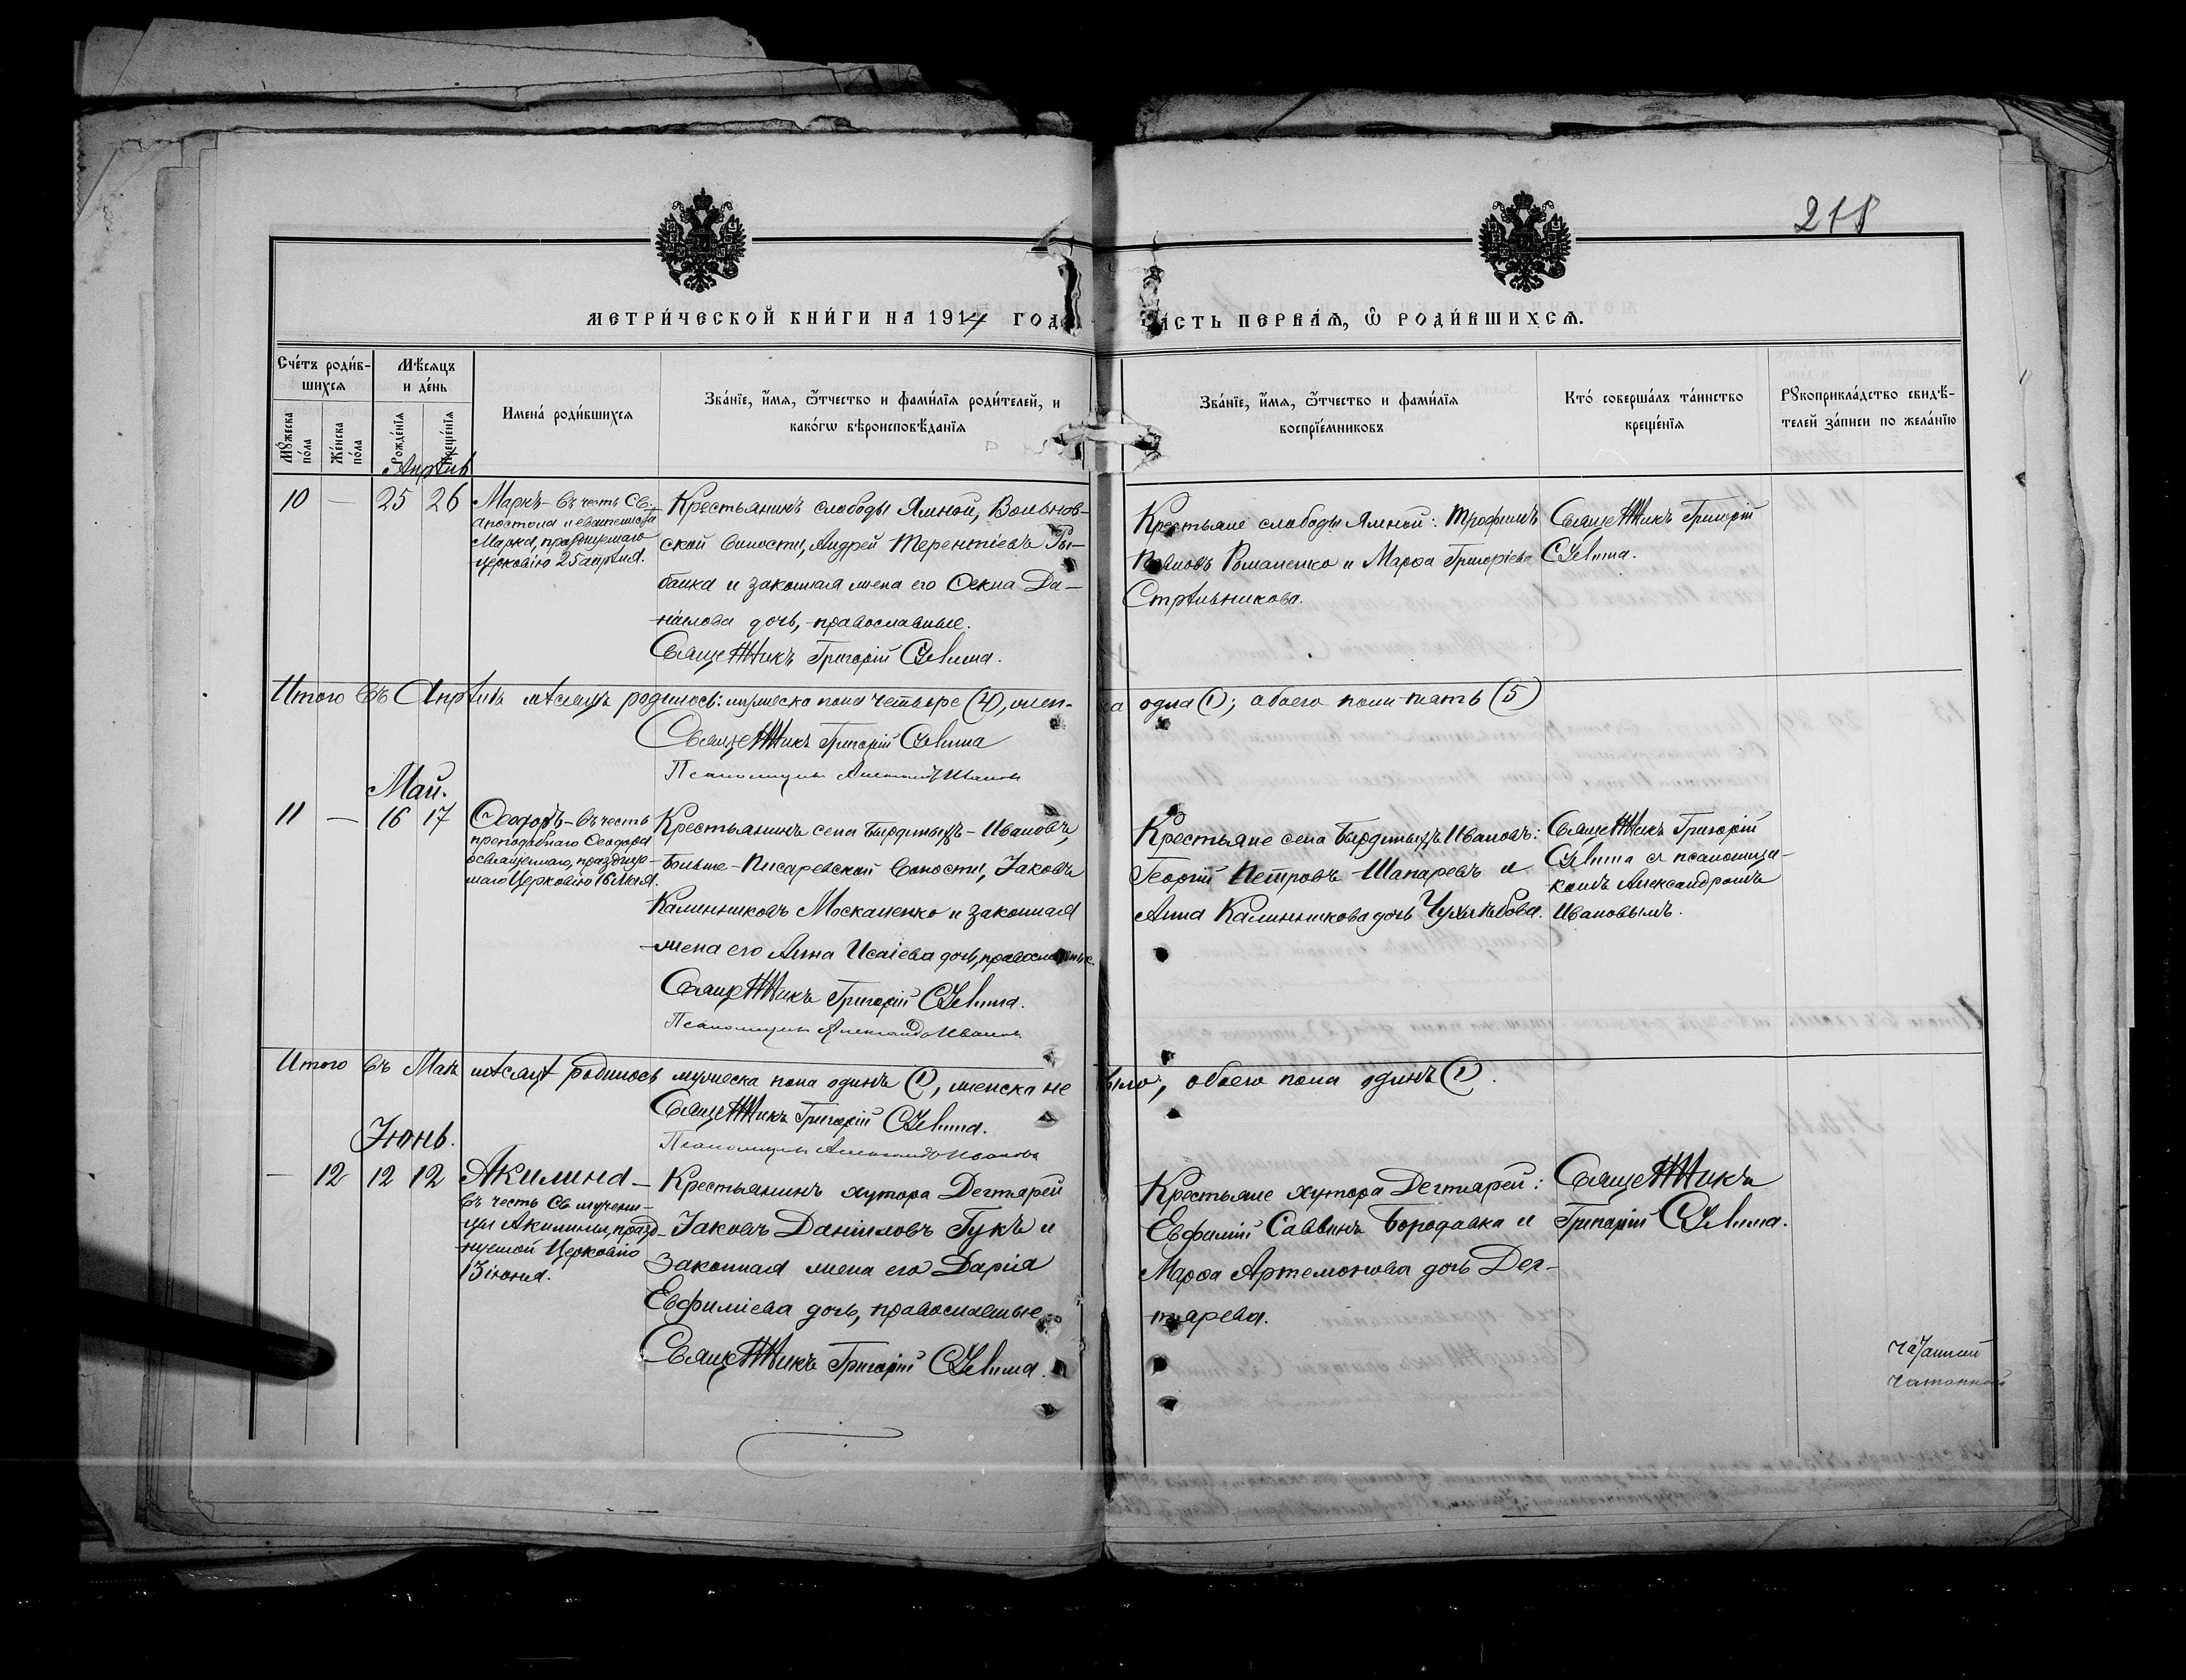 218
МЕТРИ́ЧЕСКОЙ КНИ́ГИ НА 1914 ГОД
ЧАСТЬ ПЕРВАЯ, Ѡ РОДИ́ВШИХСЯ.
Сче́тъ роди́в-
шихся
Мѣ́сяцъ
и де́нь
Имена́ роди́вшихся
Зва́нїе, и́мя, ѻ҆́тчество и фами́лїя роди́телей, и
како́гѡ вѣроисповѣ́данїя
Зва́нїе, и́мя, ѻ҆́тчество и фами́лїя
воспрїе́мниковъ
Кто́ соверша́лъ та́инство
креще́нїя
Рꙋкоприкла́дство свидѣ́-
телей за́писи по жела́нїю
Мꙋ́жеска
по́ла
Же́нска
по́ла
Рожде́нїя
Креще́нїя
Апрѣль
10 — 25 26
Маркъ - въ честь Св.
Апостола и евангелиста
Марка, празднуемаго
церковію 25 апрѣля.
Крестьянинъ слободы Ямной, Вольнов-
ской волости, Андрей Терентіевъ Ры-
балка и законная жена его Ѳекла Да-
нилова дочь, православные.
Священникъ Григорій
Крестьяне слободы Ямной: Трофимъ
Ивановъ Романенко и Марѳа Григоріева
Стрѣльникова.
Священникъ Григорій
Итого въ Апрѣлѣ мѣсяцѣ родилось: мужеска пола четыре (4), жен-
ска одна (1); обоего пола пять (5)
Священникъ Григорій
Псаломщикъ Александръ Ивановъ
Май.
11 — 16 17
Ѳеодоръ - въ честь
преподобнаго Ѳеодора
освященнаго, празднуе-
маго Церковію 16 Мая.
Крестьянинъ села Ивановъ,
Больше-Писаревской волости, Іаковъ
Калинниковъ Москаленко и законная
жена его Анна Исаіева дочь, православные.
Священникъ Григорій
Псаломщикъ Александръ Ивановъ
Крестьяне села Ивановъ:
Георгій Петровъ Шапаревъ и
Анна Калинникова дочь
Священникъ Григорій
съ псаломщи-
комъ Александромъ
Ивановымъ.
Итого въ Маѣ мѣсяцѣ родилось мужеска пола одинъ (1), женска не
было; обоего пола одинъ (1).
Священникъ Григорій
Псаломщикъ Александръ Ивановъ
Іюнь.
— 12 12 12
Акилина -
въ честь Св. мучени-
цы Акилины, празд-
нуемой Церковію
13 іюня.
Крестьянинъ хутора Дегтярей
Іаковъ Даніиловъ Гукъ и
законная жена его Дарія
Евфиміева дочь, православные
Священникъ Григорій
Крестьяне хутора Дегтярей:
Евфимій Саввинъ Бородавка и
Марѳа Артемонова дочь Дег-
тярева.
Священникъ
Григорій